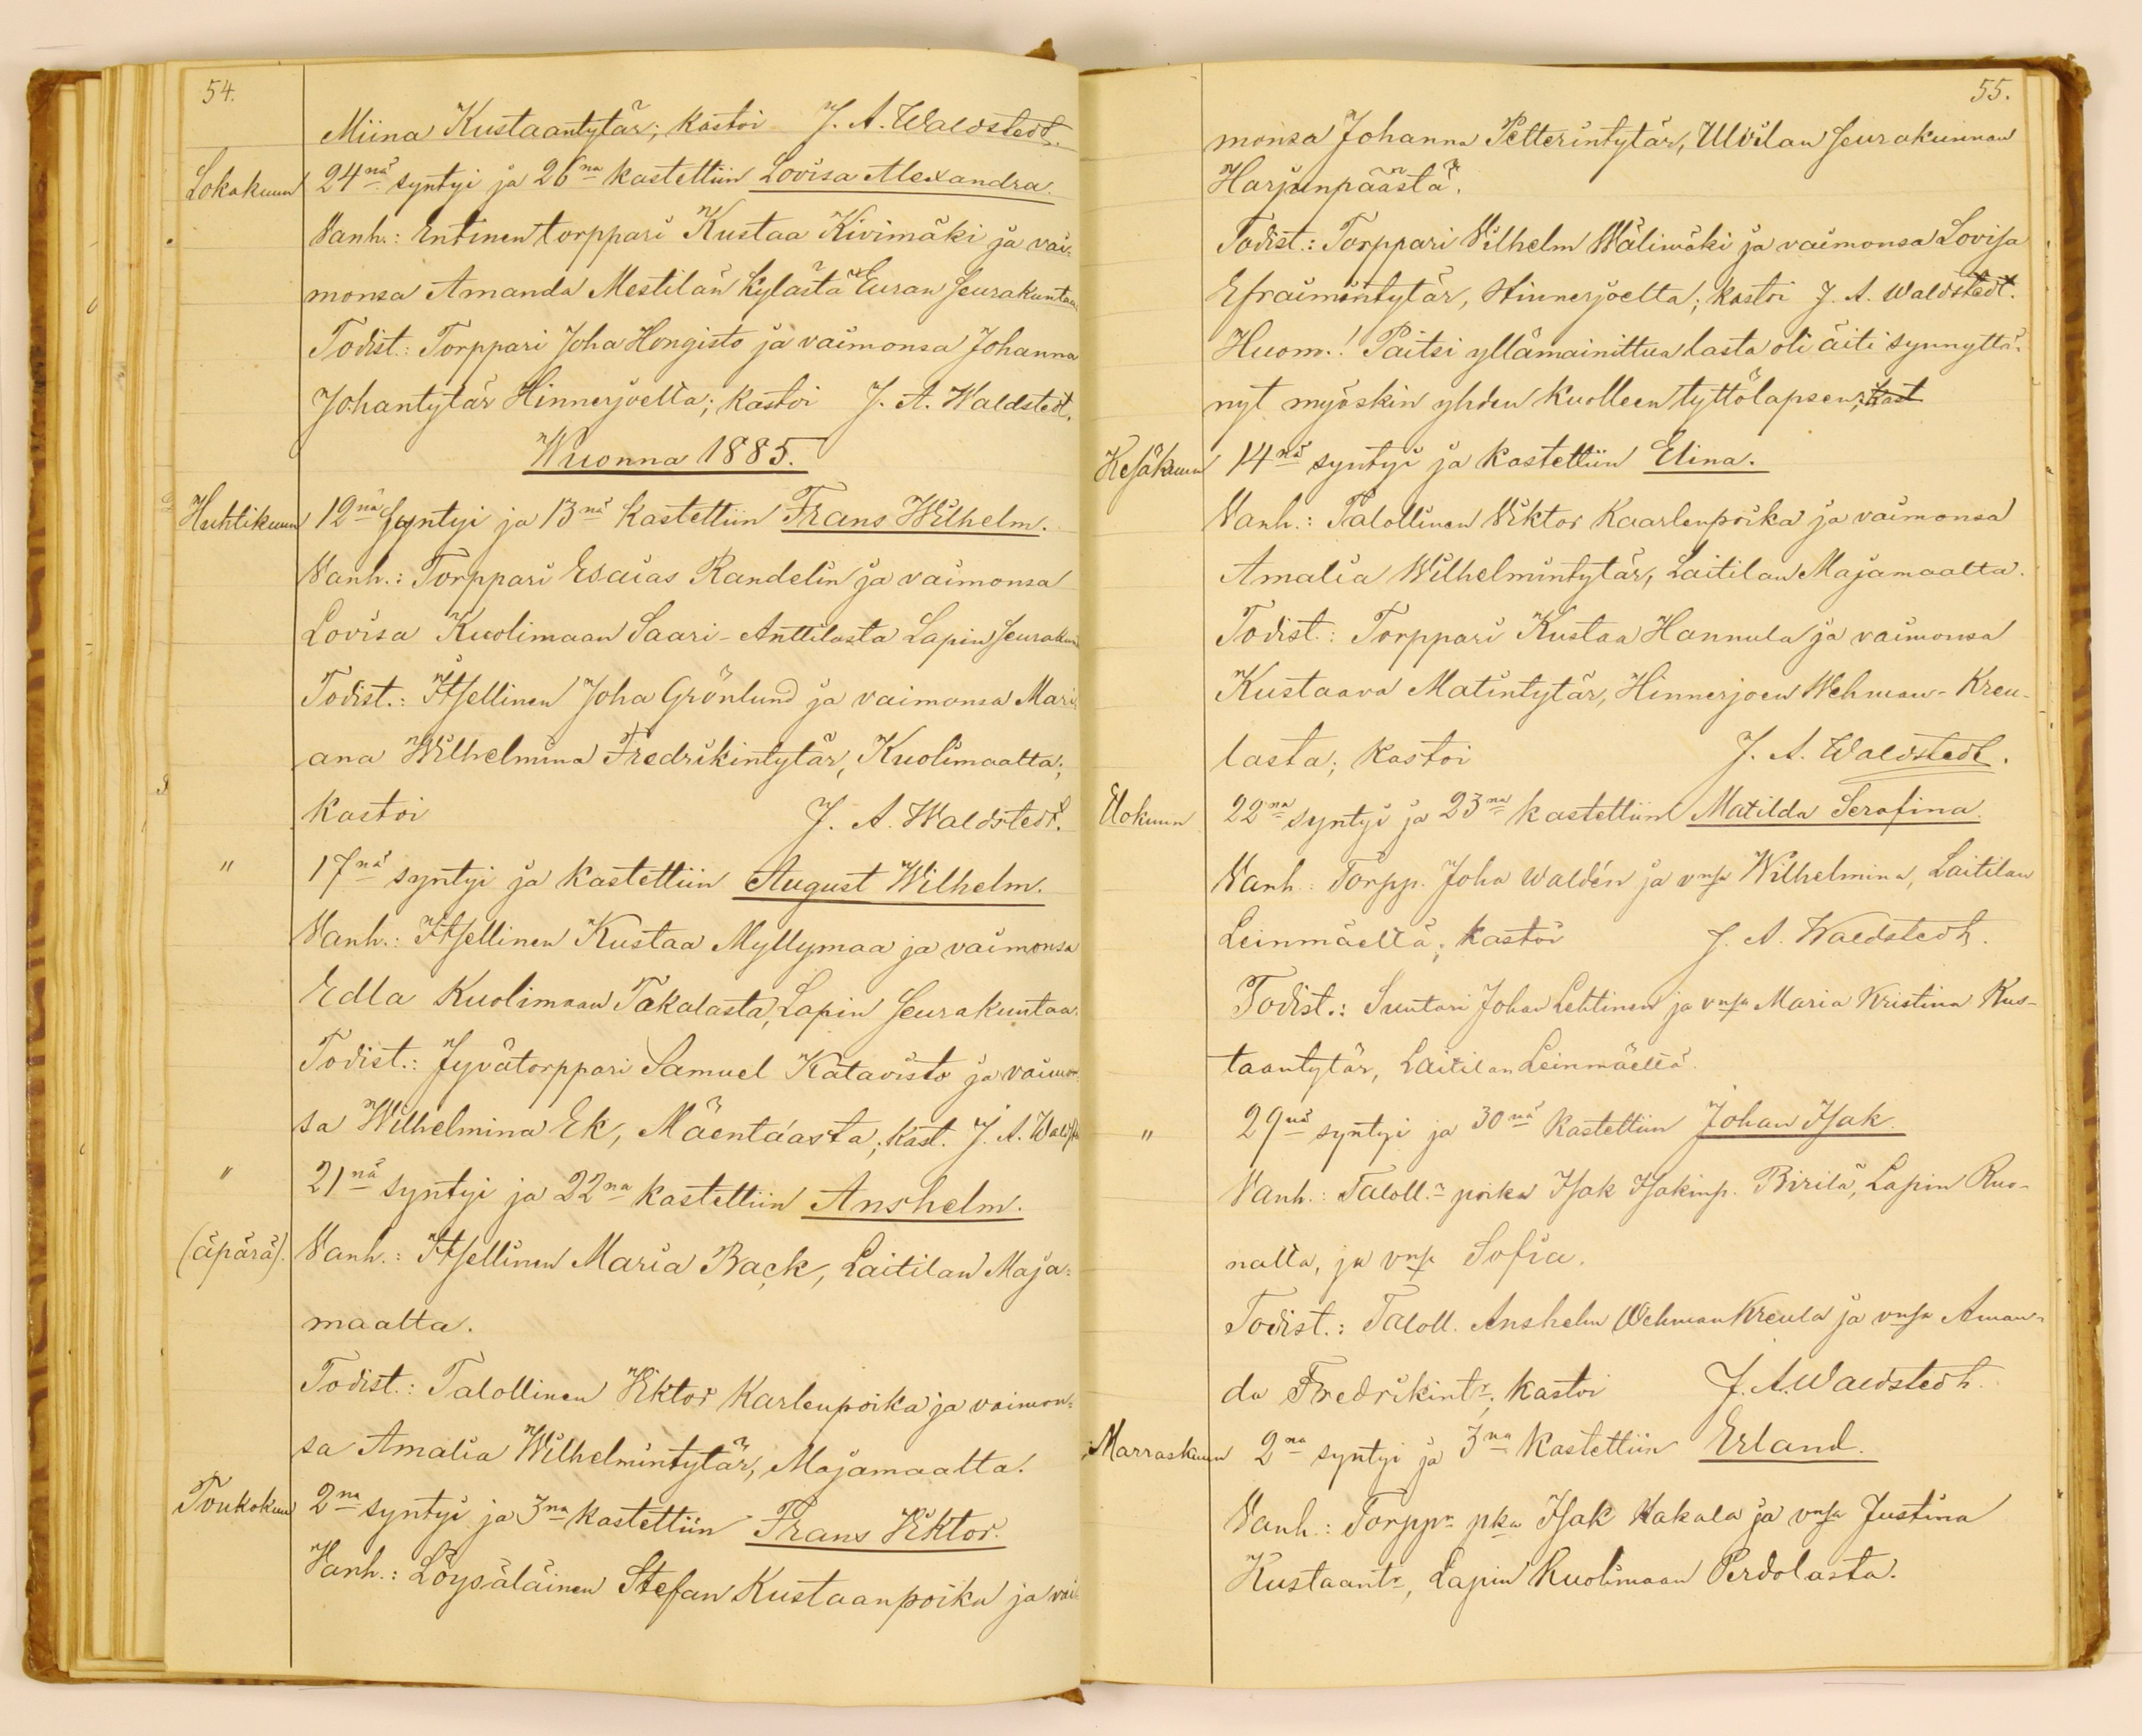 54.
Miina Kustaantytär; kastoi J. A. Waldstedt.
Lokakuun 24nä syntyi ja 26na kastettiin Lovisa Alexandra.
Vanh.: Entinen torppari Kustaa Kivimäki ja vai-
monsa Amanda Mestilän kylästä Euran seurakuntaa.
Todist.: Torppari Joha Hongisto ja vaimonsa Johanna
Johantytär Hinnerjoelta; kastoi J. A. Waldstedt.
Wuonna 1885.
Huhtikuun 12nä syntyi ja 13nä kastettiin Frans Wilhelm.
Vanh.: Torppari Esaias Randelin ja vaimonsa
Lovisa Kuolimaan Saari-Anttilasta Lapin seurakun
Todist.: Itsellinen Joha Grönlund ja vaimonsa Mari-
ana Wilhelmina Fredrikintytär, Kuolimaalta;
kastoi J. A. Waldstedt.
" 17nä syntyi ja kastettiin August Wilhelm.
Vanh.: Itsellinen Kustaa Myllymaa ja vaimonsa
Edla Kuolimaan Takalasta, Lapin seurakuntaa.
Todist.: Jyvätorppari Samuel Katavisto ja vaimon-
sa Wilhelmina Ek, Mäentaasta; kast. J. A. Waldst
" 21nä syntyi ja 22na kastettiin Anshelm.
(äpärä). Vanh.: Itsellinen Maria Back, Laitilan Maja-
maalta.
Todist.: Talollinen Viktor Karlenpoika ja vaimon-
sa Amalia Wilhelmintytär, Majamaalta.
Toukokuun 2na syntyi ja 3na kastettiin Frans Viktor.
Vanh.: Löysäläinen Stefan Kustaanpoika ja vai-
55.
monsa Johanna Petterintytär, Ulvilan seurakunnan
Harjunpäästä.
Todist.: Torppari Vilhelm Wälimäki ja vaimonsa Lovisa
Efraimintytär, Hinnerjoelta; kastoi J. A. Waldstedt.
Huom.! Paitsi yllämainittua lasta oli äiti synnyttä-
nyt myöskin yhden kuolleen tyttölapsen; kast
Kesäkuun 14nä syntyi ja kastettiin Elina.
Vanh.: Talollinen Viktor Kaarlenpoika ja vaimonsa
Amalia Wilhelmintytär, Laitilan Majamaalta.
Todist.: Torppari Kustaa Hannula ja vaimonsa
Kustaava Matintytär, Hinnerjoen Wehman-Kreu-
lasta; kastoi J. A. Waldstedt.
Elokuun 22na syntyi ja 23na kastettiin Matilda Serafina.
Vanh.: Torpp. Joha Waldén ja vnsa Wilhelmina, Laitilan
Leinmäeltä; kastoi J. A. Waldstedt.
Todist.: Suutari Johan Lehtinen ja vnsa Maria Kristina Kus-
taantytär, Laitilan Leinmäeltä.
" 29nä syntyi ja 30nä kastettiin Johan Isak.
Vanh.: Taloll.n poika Isak Isakinp. Pirilä, Lapin Ruo-
nalta, ja vnsa Sofia.
Todist.: Taloll. Anshelm Wehman Kreula ja vnsa Aman-
da Fredrikintr; kastoi J. A. Waldstedt.
Marraskuun 2na syntyi ja 3na kastettiin Erland.
Vanh.: Torppn pka Isak Kakala ja vnsa Justina
Kustaantr, Lapin Kuolimaan Perdolasta.